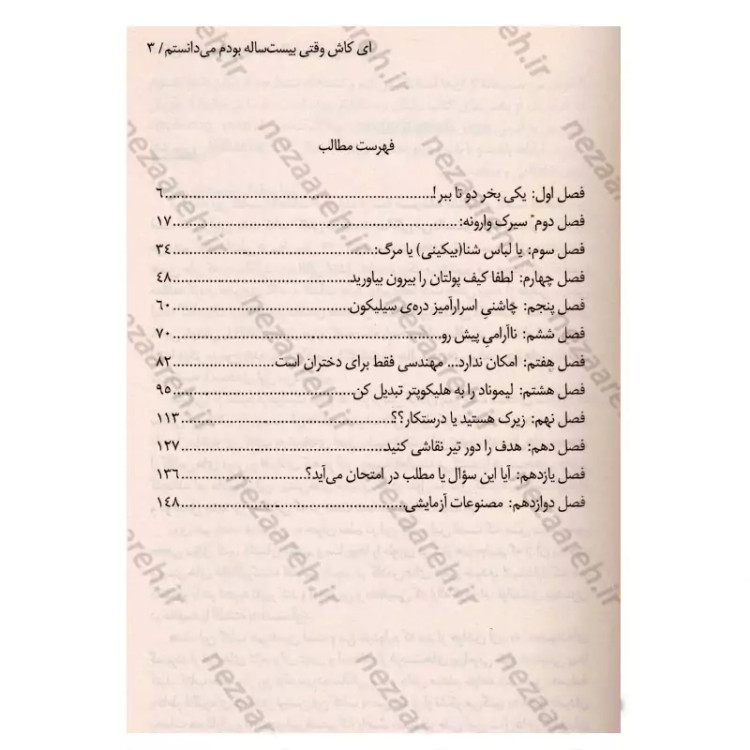 ای کاش وقتی بیست‌ساله بودم می‌دانستم / ۳
فهرست مطالب
فصل اول: یکی بخر دو تا ببر!......۶
فصل دوم: سیرک وارونه:......۱۷
فصل سوم: یا لباس شنا(بیکینی) یا مرگ:......۳۴
فصل چهارم: لطفا کیف پولتان را بیرون بیاورید......۴۸
فصل پنجم: چاشنیِ اسرارآمیز دره‌ی سیلیکون......۶۰
فصل ششم: ناآرامیِ پیش رو......۷۰
فصل هفتم: امکان ندارد... مهندسی فقط برای دختران است......۸۲
فصل هشتم: لیموناد را به هلیکوپتر تبدیل کن......۹۵
فصل نهم: زیرک هستید یا درستکار؟؟......۱۱۳
فصل دهم: هدف را دور تیر نقاشی کنید......۱۲۷
فصل یازدهم: آیا این سؤال یا مطلب در امتحان می‌آید؟......۱۳۶
فصل دوازدهم: مصنوعات آزمایشی......۱۴۸
nezaareh.ir